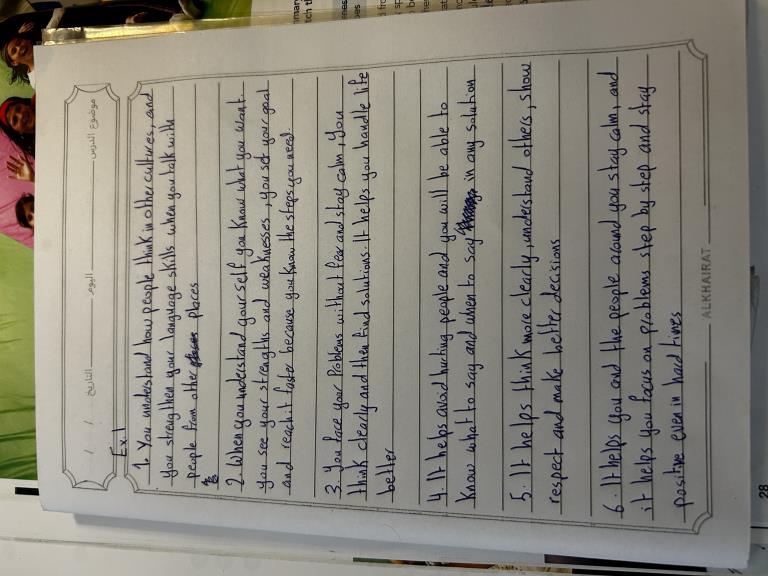 موضوع الدرس
اليوم
التاريخ / /
Ex.1
1. You understand how people think in other cultures, and
you strengthen your language skills when you talk with
people from other places
2. When you understand yourself you know what you want.
you see your strengths and weaknesses, you set your goal
and reach it faster because you know the steps you need.
3. You face your Problems without fear and stay calm, You
think clearly and then find solutions. It helps you handle life
better
4. It helps avoid hurting people and you will be able to
Know what to say and when to say in any solution
5. It helps think more clearly, understand others, show
respect and make better decisions
6. It helps you and the people around you stay calm, and
it helps you focus on problems step by step and stay
positive even in hard times
ALKHAIRAT
28